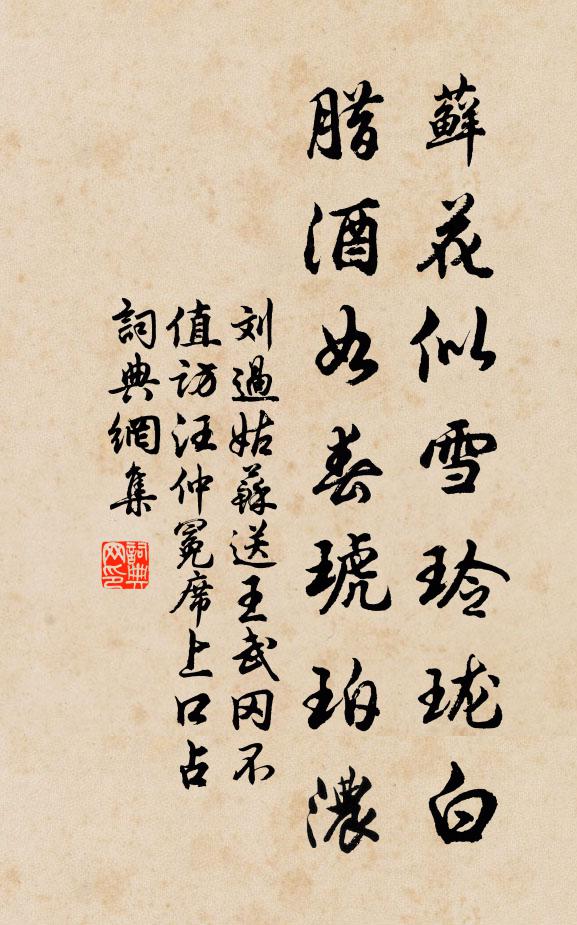 蘚花似雪玲瓏白
腊酒如春琥珀濃
刘過姑蘇送王武冈不
值訪汪仲冕席上口占
詞典網集
詞典
网印